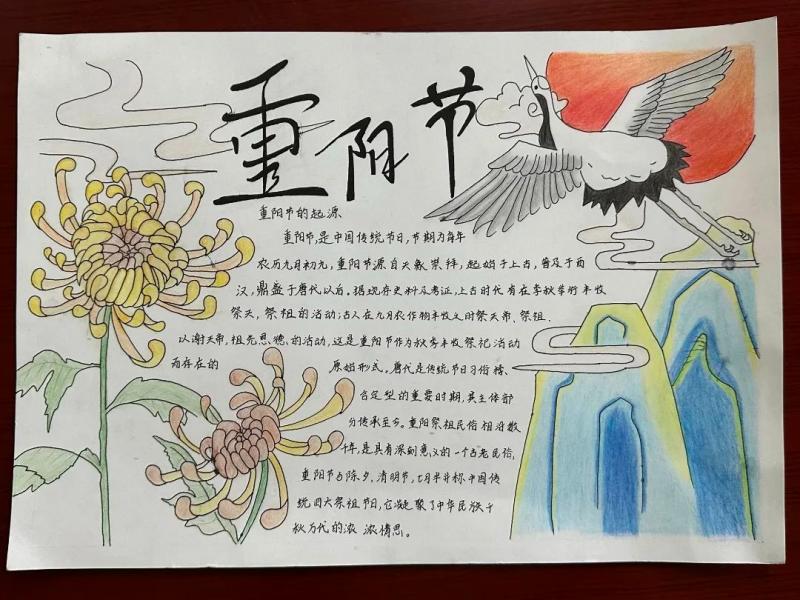 重阳节
重阳节的起源
重阳节,是中国传统节日,节期为每年
农历九月初九,重阳节源自天象崇拜,起始于上古,普及于西
汉,鼎盛于唐代以后。据现存史料及考证,上古时代有在季秋举行丰收
祭天,祭祖的活动;古人在九月农作物丰收之时祭天帝、祭祖.
以谢天帝,祖先恩德的活动,这是重阳节作为秋季丰收祭祀活动
而存在的 原始形式。唐代是传统节日习俗揉、
合定型的重要时期,其主体部
分传承至今。重阳祭祖民俗相沿数
千年,是具有深刻意义的一个古老民俗,
重阳节与除夕,清明节,七月半并称中国传
统四大祭祖节日,它凝聚了中华民族千
秋万代的浓 浓情思。